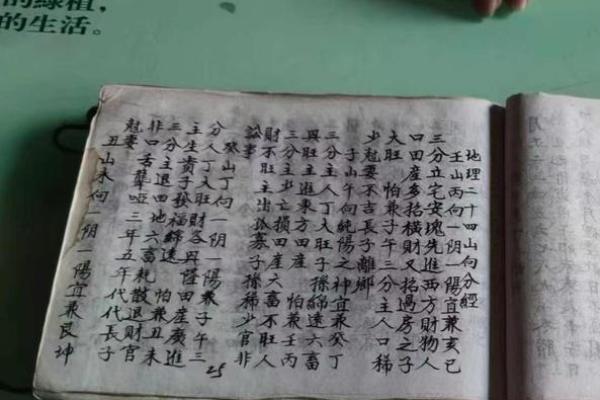 的綠植,
的生活。
地理二十四山向分經
壬山丙向一阴一陽宜兼亥巳
三分立宅安塊先進西方財物人
口田産多招橫財又招過房之子
大旺 怕兼子午三分主人口稀
少尅妻不吉長子離鄉
子山午向純陽之神宜兼癸丁
三分主人丁大旺子孫綿遠六畜
興旺主進東方田産 怕兼壬丙
三分主少亡損田産六畜不旺人
財不旺主出孤寡子孫稀少官非
訟事
癸山丁向一阴一陽兼子午三
分人丁大旺財谷丹隆田産廣進
主生貴子發福綿遠 怕兼丑未
三分主退四地六畜耗散退財官
非口舌聾啞三年五年代代長子
尅妻
丑山未向一阴一陽宜兼艮坤
25